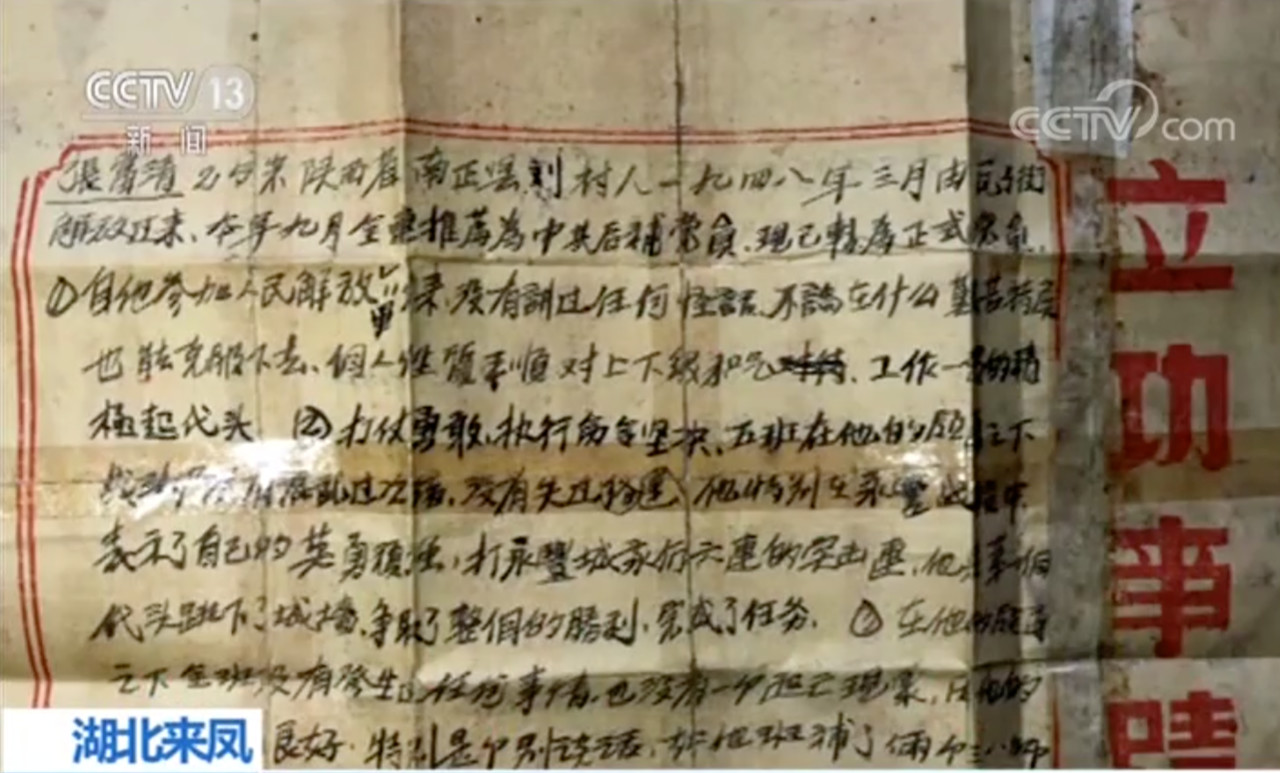 CCTV 13
新闻
CCTV com
張富清 陕西省南正县 村人一九四八年三月由瓦子街
解放过来、本年九月全 推荐為中共后補党員、现已轉為正式党員、
①自他参加人民解放軍以来、没有講过任何怪話、不論在什么艱苦
也能克服下去、個人性質柔順对上下级和气、工作一
極起代头 ②打仗勇敢、执行命令坚决、五班在他的領 之下
没有失过 、他特别在永豐战役中
表示了自己的英勇 、打永豐城我们六連的突击連、他 班
代头跳下了城墙、争取了整個的勝利、完成了任务、③在他的領导
之下全班没有發生过任何事情、也没有一个逃亡现象、
良好、特别是个别談話、 他班補了俩个
立功事
湖北来凤